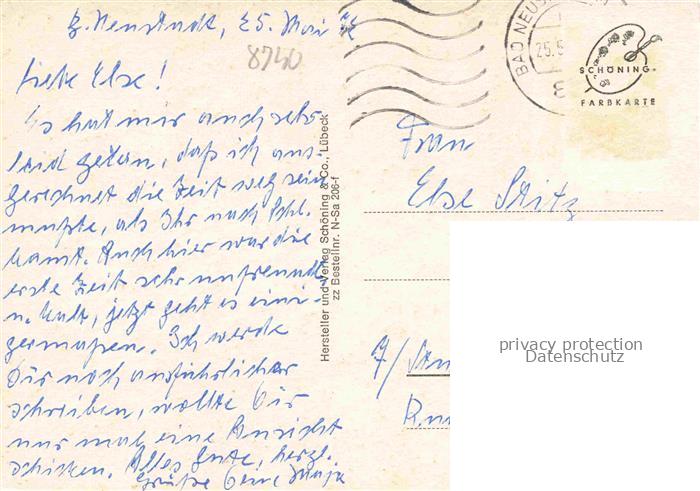 B. Neustadt, 25. Mai
8740
Liebe Else!
Es hat mir auch sehr
leid getan, daß ich aus-
gerechnet die Zeit weg sein
mußte, als Ihr nach Schl.
kamt. Auch hier war die
erste Zeit sehr unfreundl.
u. kalt, jetzt geht es eini-
germaßen. Ich werde
Dir noch ausführlicher
schreiben, wollte Dir
nur mal eine Ansicht
schicken. Alles Gute, herzl.
Grüße Deine
Hersteller und Verlag Schöning & Co., Lübeck
zz Bestellnr. N-Sa 206-f
BAD NEUS
25.5
SCHÖNING-
FARBKARTE
Frau
Else Stitz
7/
privacy protection
Datenschutz